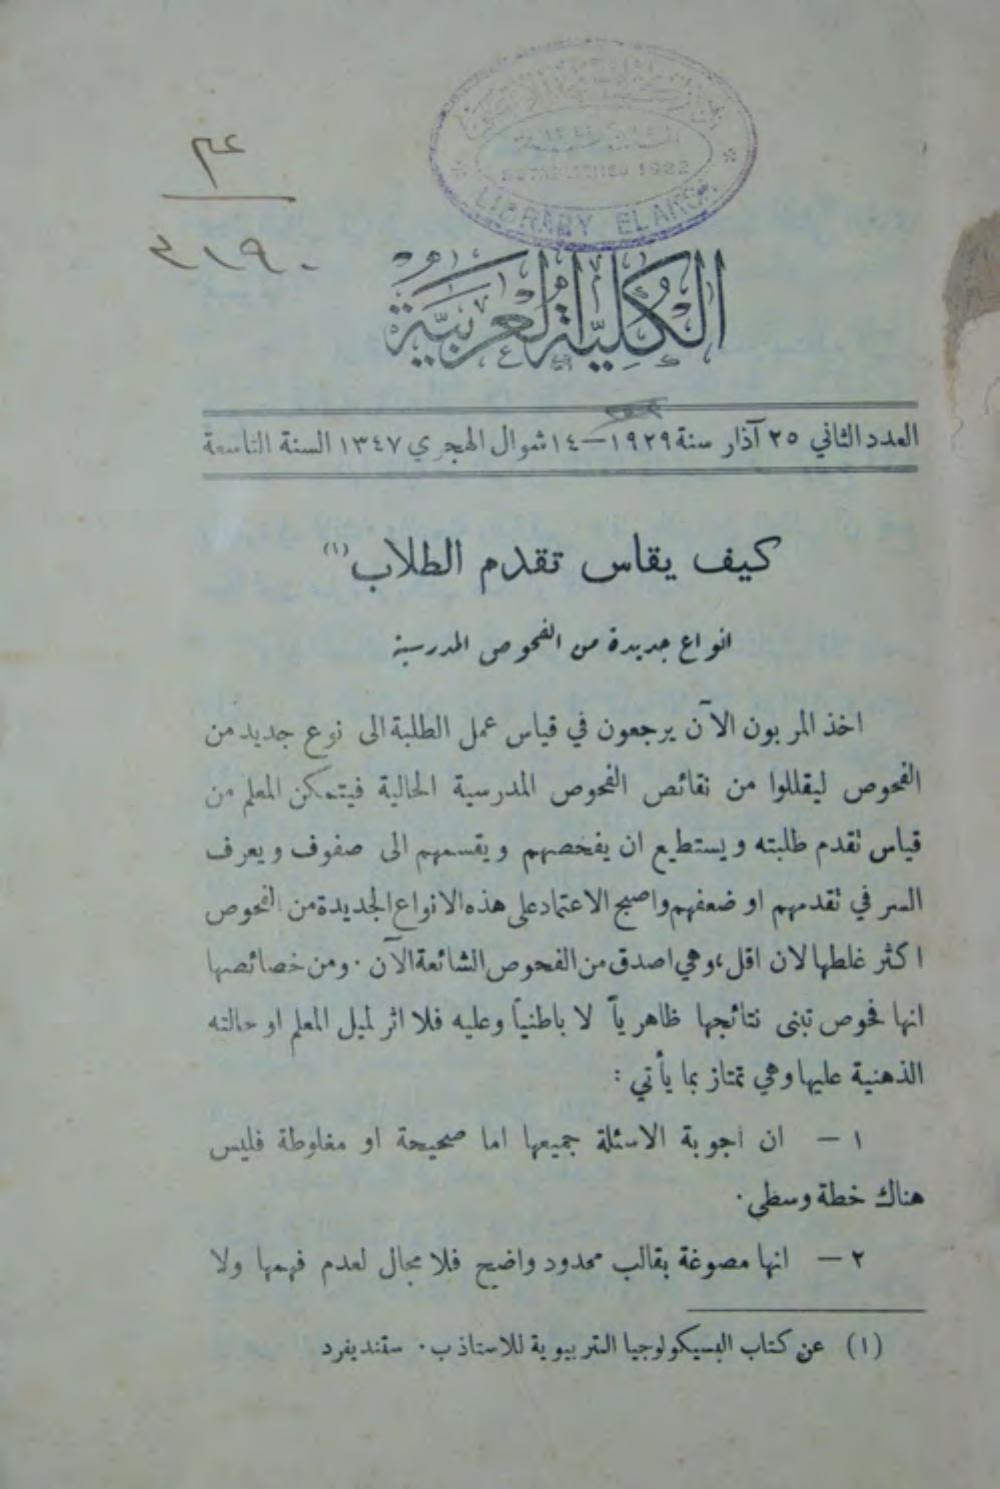 عم
٣١٩٠
ESTABLISHED 1922
LIBRARY EL AKSA
الكلية العربية
العدد الثاني ٢٥ آذار سنة ١٩٢٩ — ١٤ شوال الهجري ١٣٤٧ السنة التاسعة
كيف يقاس تقدم الطلاب (١)
انواع جديدة من الفحوص المدرسية
اخذ المربون الآن يرجعون في قياس عمل الطلبة الى نوع جديد من
الفحوص ليقللوا من نقائص الفحوص المدرسية الحالية فيتمكن المعلم من
قياس تقدم طلبته ويستطيع ان يفحصهم ويقسمهم الى صفوف ويعرف
السر في تقدمهم او ضعفهم واصبح الاعتماد على هذه الانواع الجديدة من الفحوص
اكثر غلطها لان اقل، وهي اصدق من الفحوص الشائعة الآن ٠ ومن خصائصها
انها فحوص تبنى نتائجها ظاهرياً لا باطنياً وعليه فلا اثر لميل المعلم او حالته
الذهنية عليها وهي تمتاز بما يأتي :
١ — ان اجوبة الاسئلة جميعها اما صحيحة او مغلوطة فليس
هناك خطة وسطى ٠
٢ — انها مصوغة بقالب محدود واضح فلا مجال لعدم فهمها ولا
(١) عن كتاب البسيكولوجيا التربيوية للاستاذ ب ٠ ستنديفرد